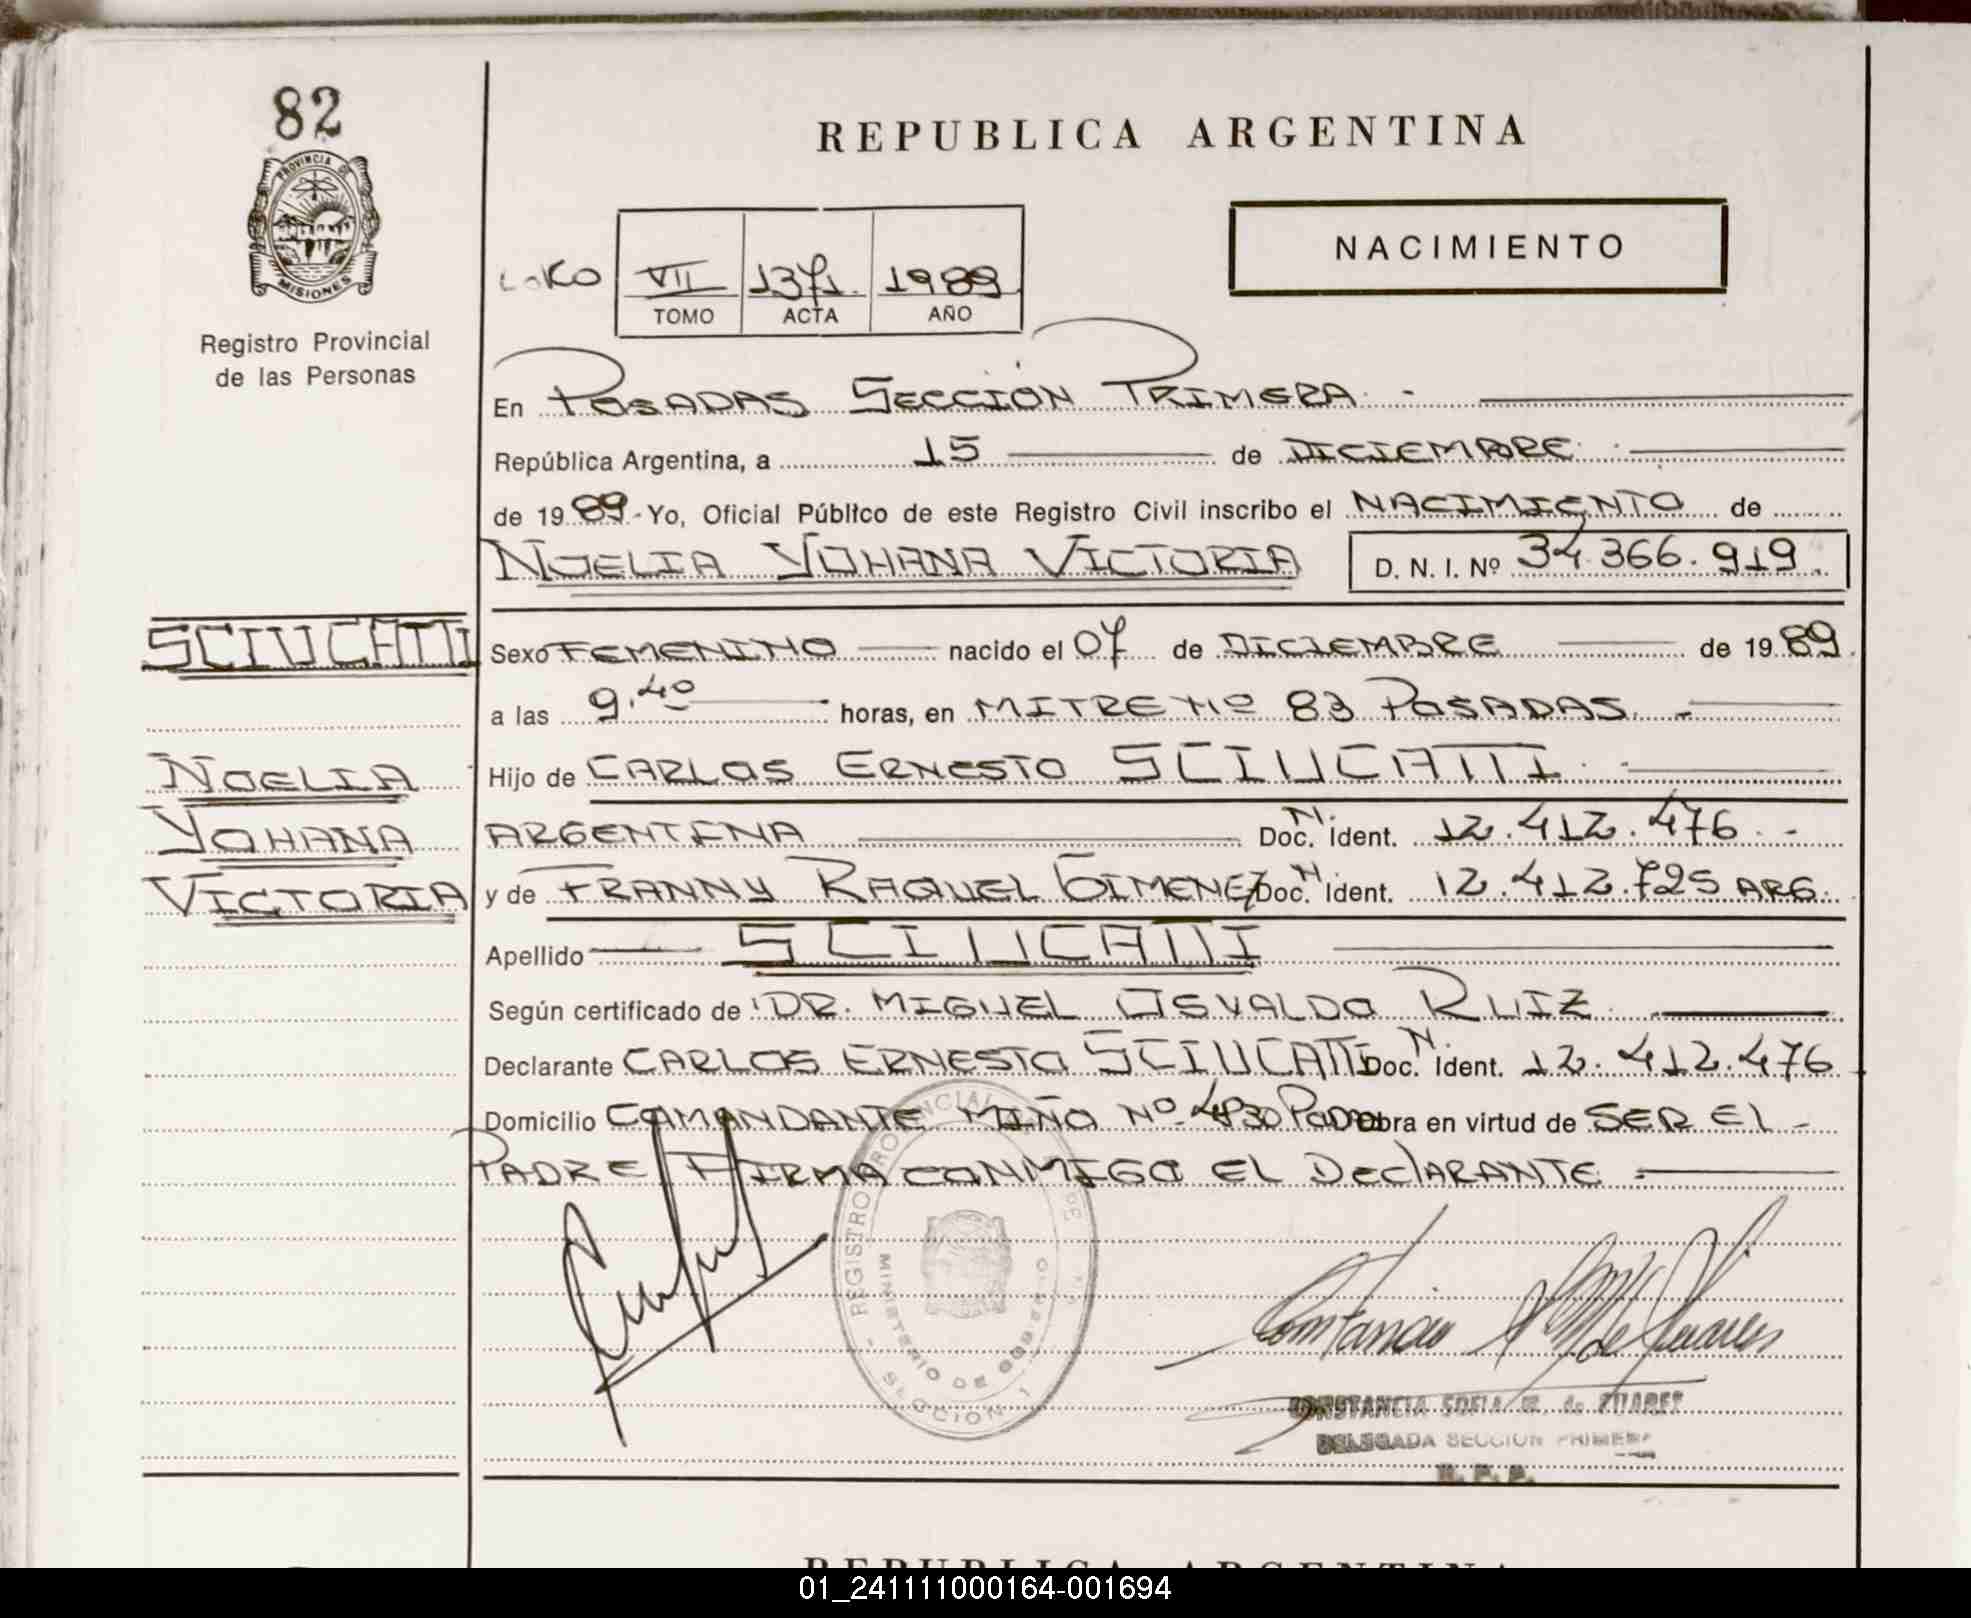 82
PROVINCIA DE
MISIONES
Registro Provincial
de las Personas
REPUBLICA ARGENTINA
NACIMIENTO
VII 1371. 1989
TOMO ACTA AÑO
En POSADAS SECCIÓN PRIMERA.-
República Argentina, a 15 de DICIEMBRE.
de 1989.- Yo, Oficial Público de este Registro Civil inscribo el NACIMIENTO de
NOELIA YOHANA VICTORIA D. N. I. Nº 34.366.919.
SCIUCATTI
NOELIA
YOHANA
VICTORIA
Sexo FEMENINO nacido el 07 de DICIEMBRE de 1989.
a las 9.40 horas, en MITRE Nº 83 POSADAS.-
Hijo de CARLOS ERNESTO SCIUCATTI.
ARGENTINA Doc. N. Ident. 12.412.476.-
y de FRANNY RAQUEL GIMENEZ Doc. N. Ident. 12.412.725 ARG.
Apellido SCIUCATTI
Según certificado de DR. MIGUEL OSVALDO RUIZ
Declarante CARLOS ERNESTO SCIUCATTI Doc. N. Ident. 12.412.476
Domicilio COMANDANTE MIÑO Nº Obra en virtud de SER EL -
PADRE FIRMA CONMIGO EL DECLARANTE.-
REGISTRO PROVINCIAL DE
MINISTERIO DE GOBIERNO
SECCION 1
CONSTANCIA SOFIA M. de
DELEGADA SECCION PRIMERA
R. P. P.
REPUBLICA ARGENTINA
01_241111000164-001694